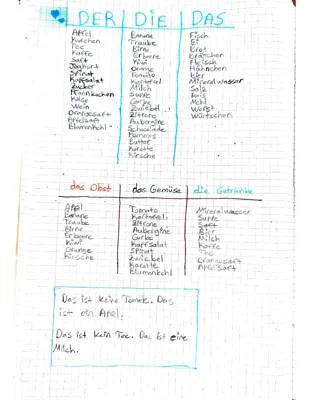 DER DIE DAS
Apfel
Kuchen
Tee
Kaffe
Saft
Joghurt
Spinat
Kopfsalat
Zucker
Pfannkuchen
Käse
Wein
Orangesaft
Apfelsaft
Blumenkohl
Banane
Traube
Birne
Erbere
Kiwi
Orange
Tomate
Kartoffel
Milch
Suppe
Gurke
Zwiebel
Zitrone
Aubergine
Pommes
Butter
Karotte
Kirsche
Fisch
Ei
Brot
Brötchen
Fleisch
Hähnchen
Bier
Mineralwasser
Salz
Reis
Mehl
Wurst
Würtschen
das Obst
Apfel
Banane
Traube
Birne
Erbeere
Kiwi
Orange
Kirsche
das Gemüse
Tomate
Kartoffel
Zitrone
Aubergine
Gurke
Kopfsalat
Spinat
Zwiebel
Karotte
Blumenkohl
die Getränke
Mineralwasser
Suppe
Saft
Bier
Milch
Kaffe
Tee
Orangesaft
Apfelsaft
Das ist keine Tomate. Das
ist ein Apfel.
Das ist kein Tee. Das ist eine
Milch.